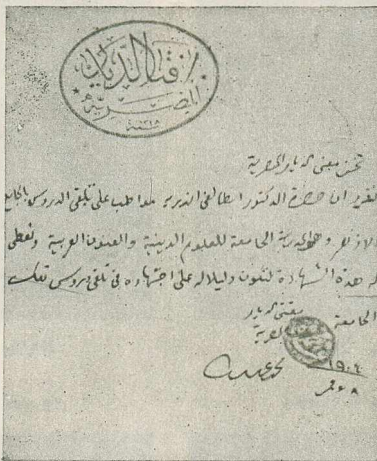 إفتاء الديار
المصرية
سنة ١٣١٨
نحن مفتى الديار المصرية
نقرر ان حضرة الدكتور ايطالى الذى مواظب على تلقى الدروس بالجامع
الازهر وهو المدرسة الجامعة للعلوم الدينية والفنون العربية ونعطى
له هذه الشهادة لتكون دليلا له على اجتهاده فى تلقى دروس تلك
الجامعة مفتى الديار
المصرية
١٩٠٤
محمد عبده